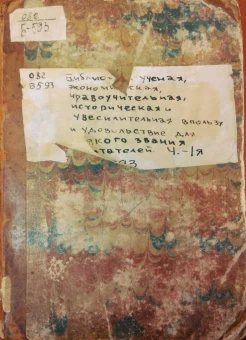 обе
Б-593
Библиот ученая,
эконом ская,
нравоучительная,
историческая и
увеселительная впользу
и удовольствие для
кого звания
тателей Ч.-1я
93